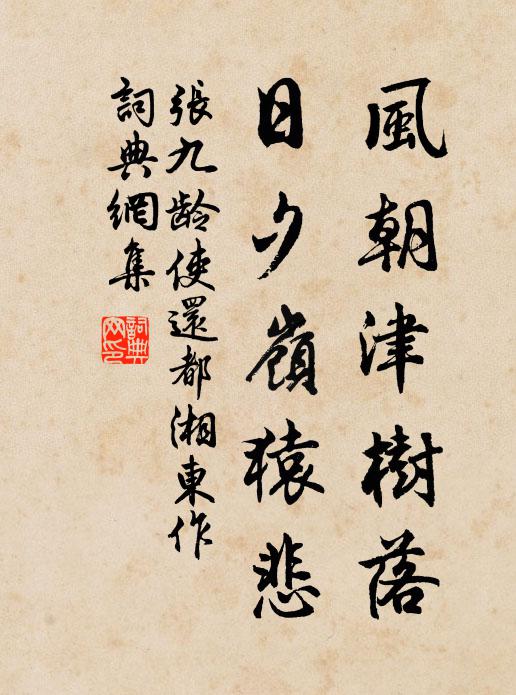 風朝津樹落
日夕嶺猿悲
張九齡使還都湘東作
詞典網集
詞典網印